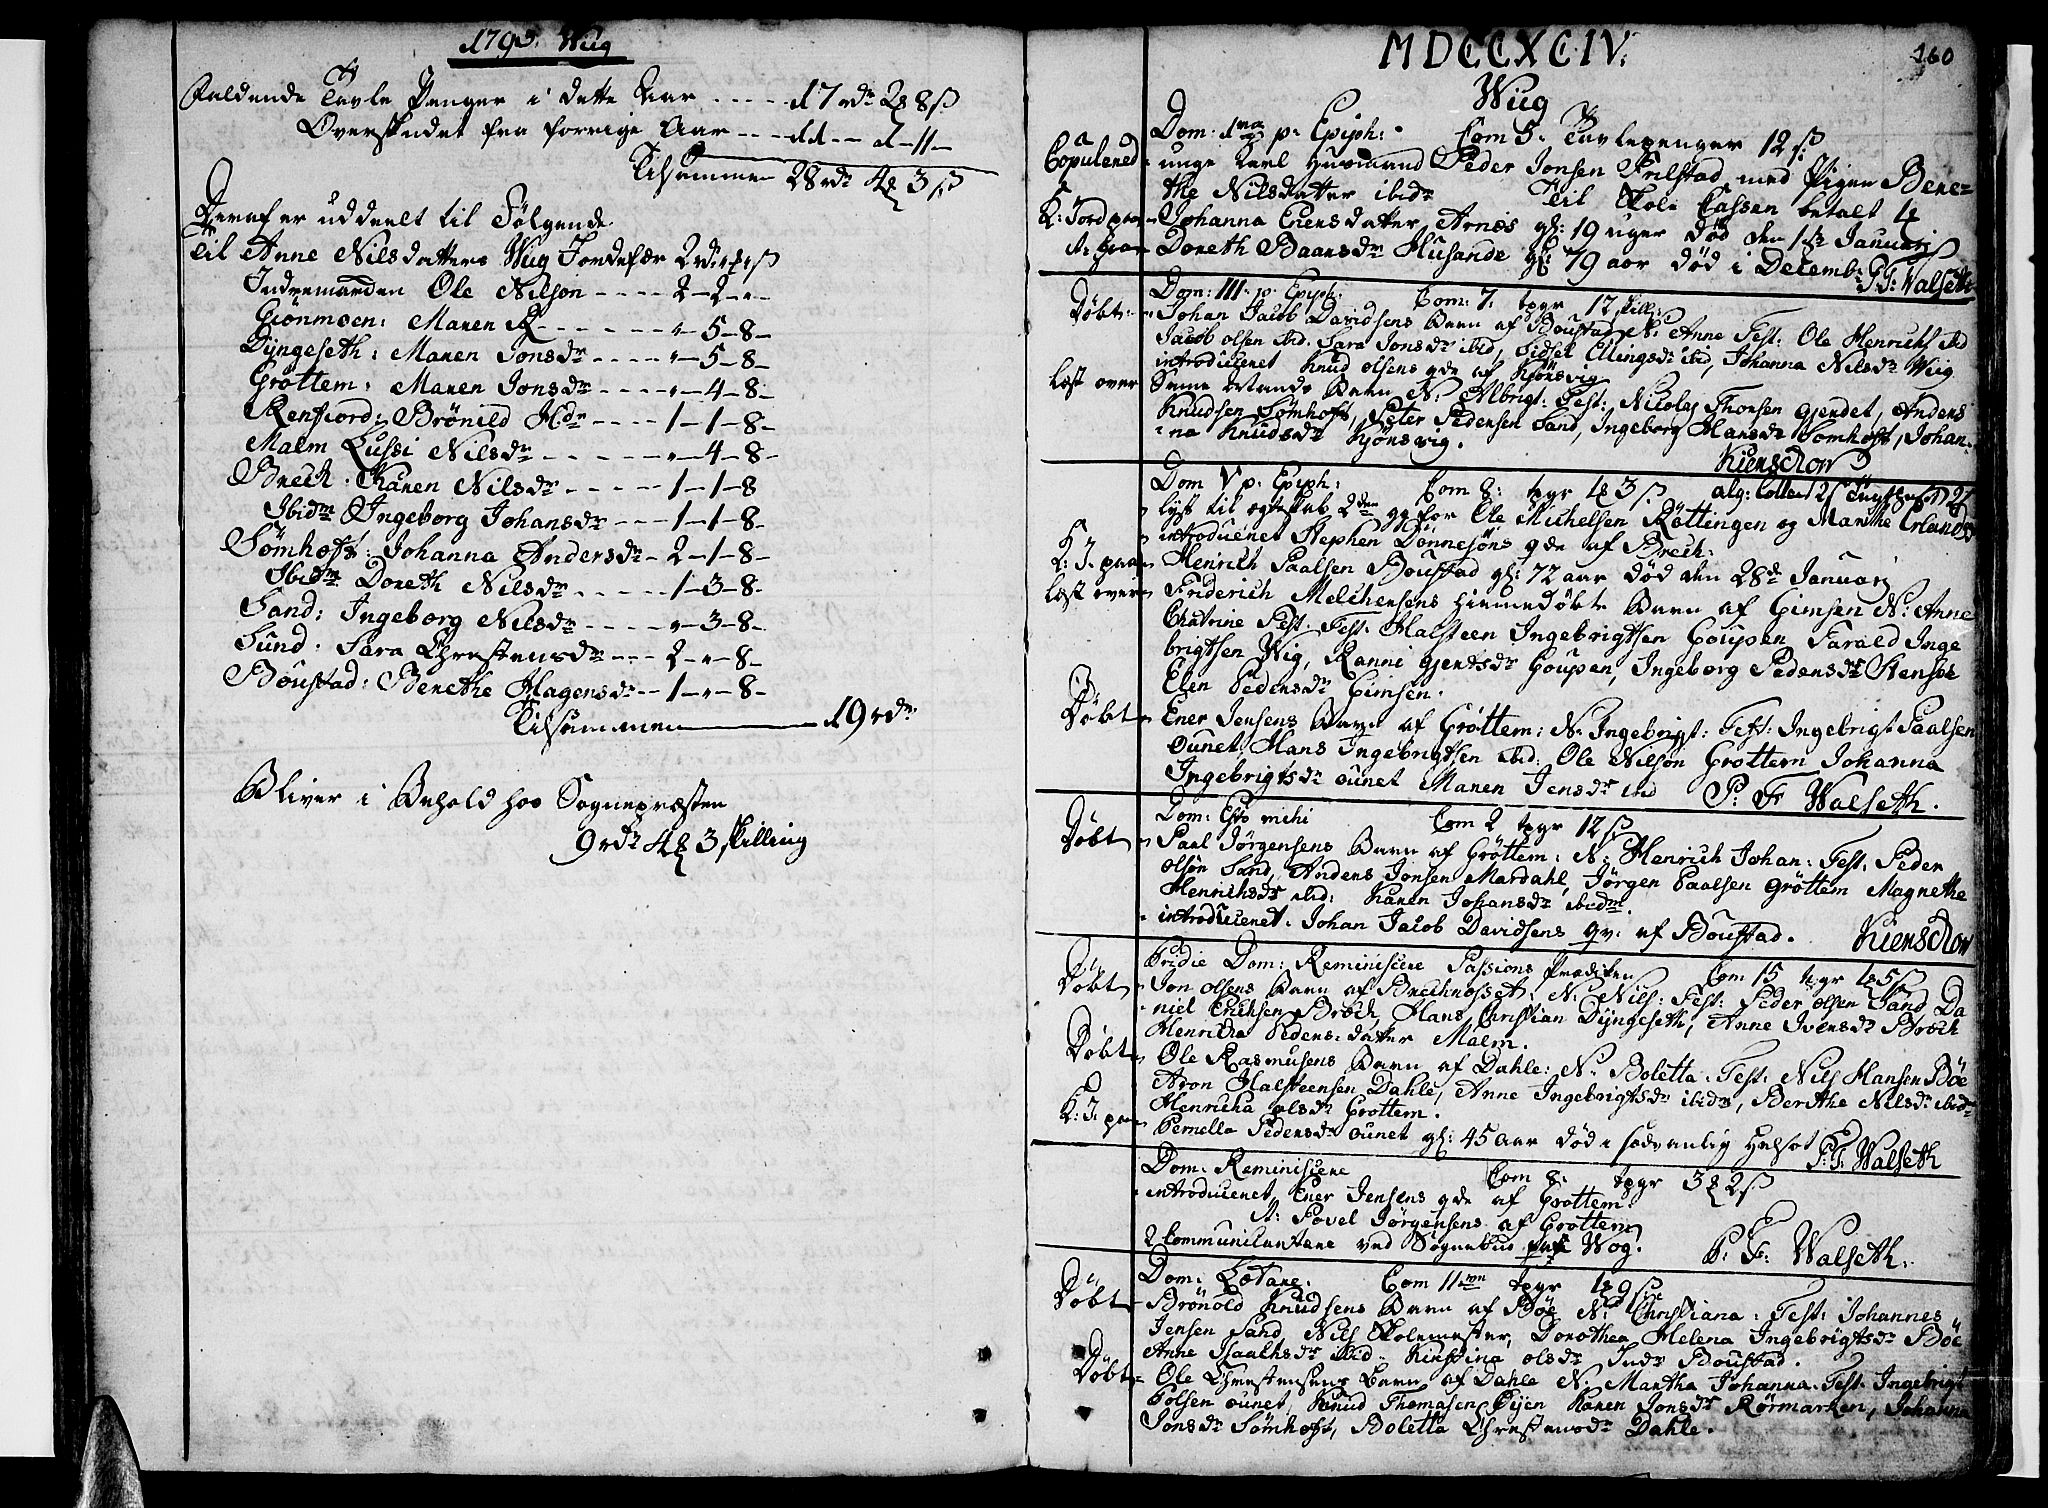 1793. Wüg
Faldende Tavle Penger i dette Aar ---- 17 rdr 2 8 ß
Overskudet fra forrige Aar --- 11 -- 1 - 11 -
Tilsammen 28 rdr 4 3 ß
Deraf er uddeelt til Følgende
Til Anne Nilsdatters Wüg Jordefær 2 rd
Indremarden Ole Nilson ---- 2 - 2 - " -
Gionmoen: Maren ----- " - 5 - 8 -
Dÿngeseth: Maren Jonsdr ---- " - 5 - 8 -
Grøttem: Maren Jonsdr ---- " - 4 - 8 -
Renfiord: Brønild Hdr --- 1 - 1 - 8 -
Malm Lussi Nilsdr ----- " - 4 - 8 -
Brech. Karen Nilsdr ---- 1 - 1 - 8
Ibidm Ingeborg Johansdr --- 1 - 1 - 8 -
Sømhoft: Johanna Andersdr - 2 - 1 - 8 -
Ibidm Doreth Nilsdr ---- 1 - 3 - 8 -
Sand: Ingeborg Nilsdr ---- " - 3 - 8 -
Sund: Sara Chrestensdr --- 2 - " - 8 -
Boustad: Berethe Hagensdr -- 1 - " - 8 -
Tilsammen 19 rdr
Bliver i Behold hos Sognepræsten
9 rdr 4 3 skilling
MDCCXCIV.
160
Wüg
Dom: 1ma p: Epiph: Com 5: Tavlepenger 12 ß
Copulered unge Karl Huusmand Peder Jonsen Frilstad med Pigen Bere=
the Nilsdatter ibidm Til Skole Cassen betalt 4
K: Jord paa Johanna Enersdatter Arnes gl: 19 uger død den 1ste Januarj
Doreth Baarsdr Husande gl: 79 aar død i Decemb: P: F: Walseth
Dom: III p: Epiph: Com: 7: tpgr 17 skill:
Døbt Johan Jacob Davidsens Barn af Boustad N: Anne Test: Ole Henrichs ibd
Jacob olsen ibd. Sara Jonsdr ibid, Sidsel Ellingsdr ibid, Johanna Nilsdr Wüg
introduceret Knud olsens qde af Kjørsvig
Læst over Samme Barn N: Albrigt: Test: Nicolaj Thorsen gjerdet, Anders
Knudsen Sømhoft, Peter Pedersen Sand, Ingeborg Hansdr Somhoft, Johan-
na Knudsdr Kjørsvig. Kierschow
Dom V p: Epiph: Com 8: tpgr 1 3 ß
lyst til egteskab 2den gg for Ole Michelsen Røttingen og Marthe Erlandsd
introduceret Stephen Donnesøns qde af Brech:
K: J: paa Henrich Paalsen Boustad gl: 72 aar død den 28de Januarj
Læst over Friderich Melchersens hiemmedøbte Barn af Gimsen N: Anne
Chatrine Test: Halsteen Ingebrigtsen Goupen Farald Inge
brigtsen Wig, Ranni Gjertsdr Goupen, Ingeborg Pedersdr Stensøe
Elen Pedersdr Gimsen.
Døbt Ener Jensens Barn af Grøttem: N: Ingebrigt: Test: Ingebrigt Paalsen
Ounet Hans Ingebrigtsen ibid: Ole Nilsøn Grottem Johanna
Ingebrigtsdr ounet Maren Jensdr ibid P: F: Walseth.
Dom: Esto mihi Com 2 tpgr 12 ß
Døbt Paal Jørgensens Barn af Grøttem: N: Henrich Johan: Test: Peder
olsøn Sand, Anders Jonsen Mardahl, Jørgen Paalsen Grøttem Magnethe
Henrichsdr ibid: Karen Johansdr ibidm.
introduceret: Johan Jacob Davidsens qv: af Boustad. Kierschow
Pridie Dom: Reminiscere Passions Prediken Com 15 tpgr 1 5 ß
Døbt Jon olsens Barn af Brechnosset: N: Nils: Test: Peder olsen Sand Da
niel Erichsen Broch, Hans Christian Dÿngeseth, Anne Iversdr Broch
Henricha Peders:datter Malm.
Døbt Ole Rasmusens Barn af Dahle: N: Boletta: Test: Nils Hansen Böe
Aron Halsteensen Dahle, Anne Ingebrigtsdr ibidm, Berethe Nilsdr ibidm
Henricha olsdr Grottem.
K: J: paa Pernella Pedersdr ounet gl: 45 aar død i sædvanlig P: F: Walseth
Dom: Reminiscere Com 8: tpgr 3 2 ß
introduceret, Ener Jensens qde af Grottem.
It: Povel Jørgensens af Grottem
2 Communicantere ved Sognebud paa Wog. P: F: Walseth.
Dom: Lætare. Com 11 tpgr 1 9 ß
Døbt Brønold Knudsens Barn af Böe N: Christiana: Test: Johannes
Jensen Sand, Nils Skolemester, Dorothea Helena Ingebrigtsdr Böe
Anne Isaachsdr ibid: Kirstina olsdr Indr Boustad.
Døbt Ole Chrestensens Barn af Dahle N: Martha Johanna. Test: Ingebrigt
Polsen ounet, Knud Thomasen Øÿen Karen Jonsdr Rørmarken, Johanna
Jonsdr Sømhoft, Boletta Chrestensdr Dahle.